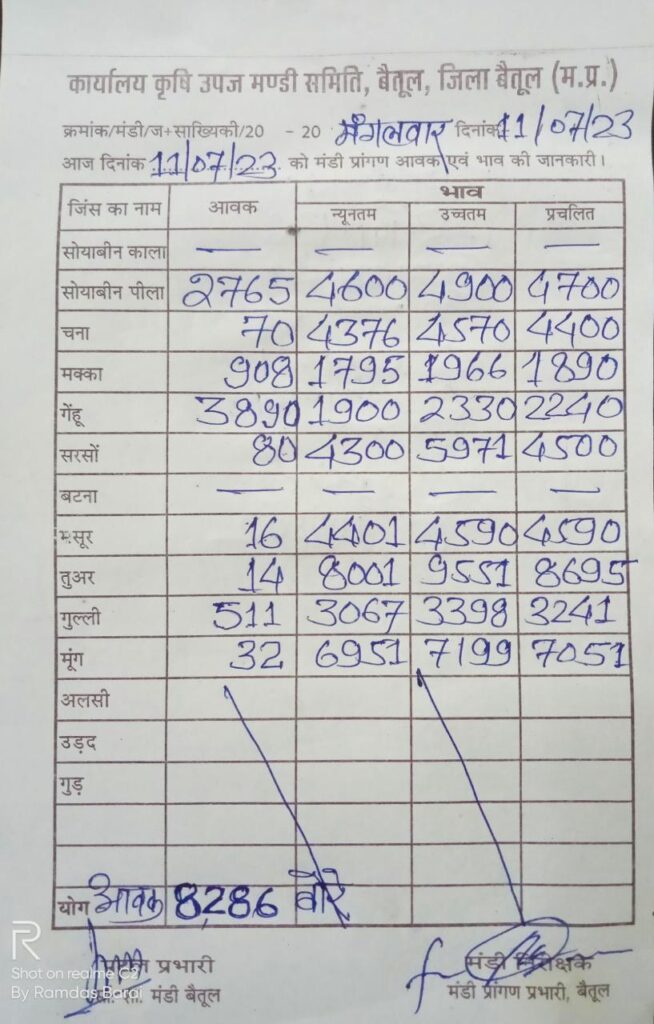 कार्यालय कृषि उपज मण्डी समिति, बैतूल, जिला बैतूल (म.प्र.)
क्रमांक/मंडी/ज+साख्यिकी/20 - 20 मंगलवार दिनांक 11/07/23
आज दिनांक 11/07/23 को मंडी प्रांगण आवक एवं भाव की जानकारी।
जिंस का नाम आवक भाव
न्यूनतम उच्चतम प्रचलित
सोयाबीन काला — — — —
सोयाबीन पीला 2765 4600 4900 4700
चना 70 4376 4570 4400
मक्का 908 1795 1966 1890
गेंहू 3890 1900 2330 2240
सरसों 80 4300 5971 4500
बटना — — — —
मसूर 16 4401 4590 4590
तुअर 14 8001 9551 8695
गुल्ली 511 3067 3398 3241
मूंग 32 6951 7199 7051
अलसी
उड़द
गुड़
योग आवक 8286 बोरे
प्रभारी मंडी
मंडी बैतूल मंडी प्रांगण प्रभारी, बैतूल
R
Shot on realme C2
By Ramdas Barai